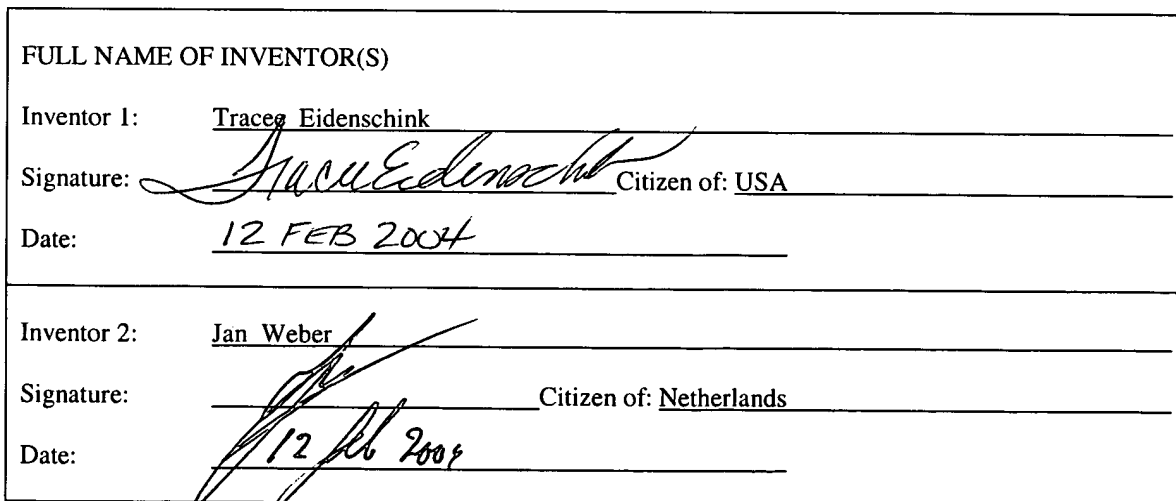 FULL NAME OF INVENTOR(S)
Inventor 1: Tracee Eidenschink
Signature: Tracee Eidenschink Citizen of: USA
Date: 12 FEB 2004
Inventor 2: Jan Weber
Signature: Citizen of: Netherlands
Date: 12 feb 2004